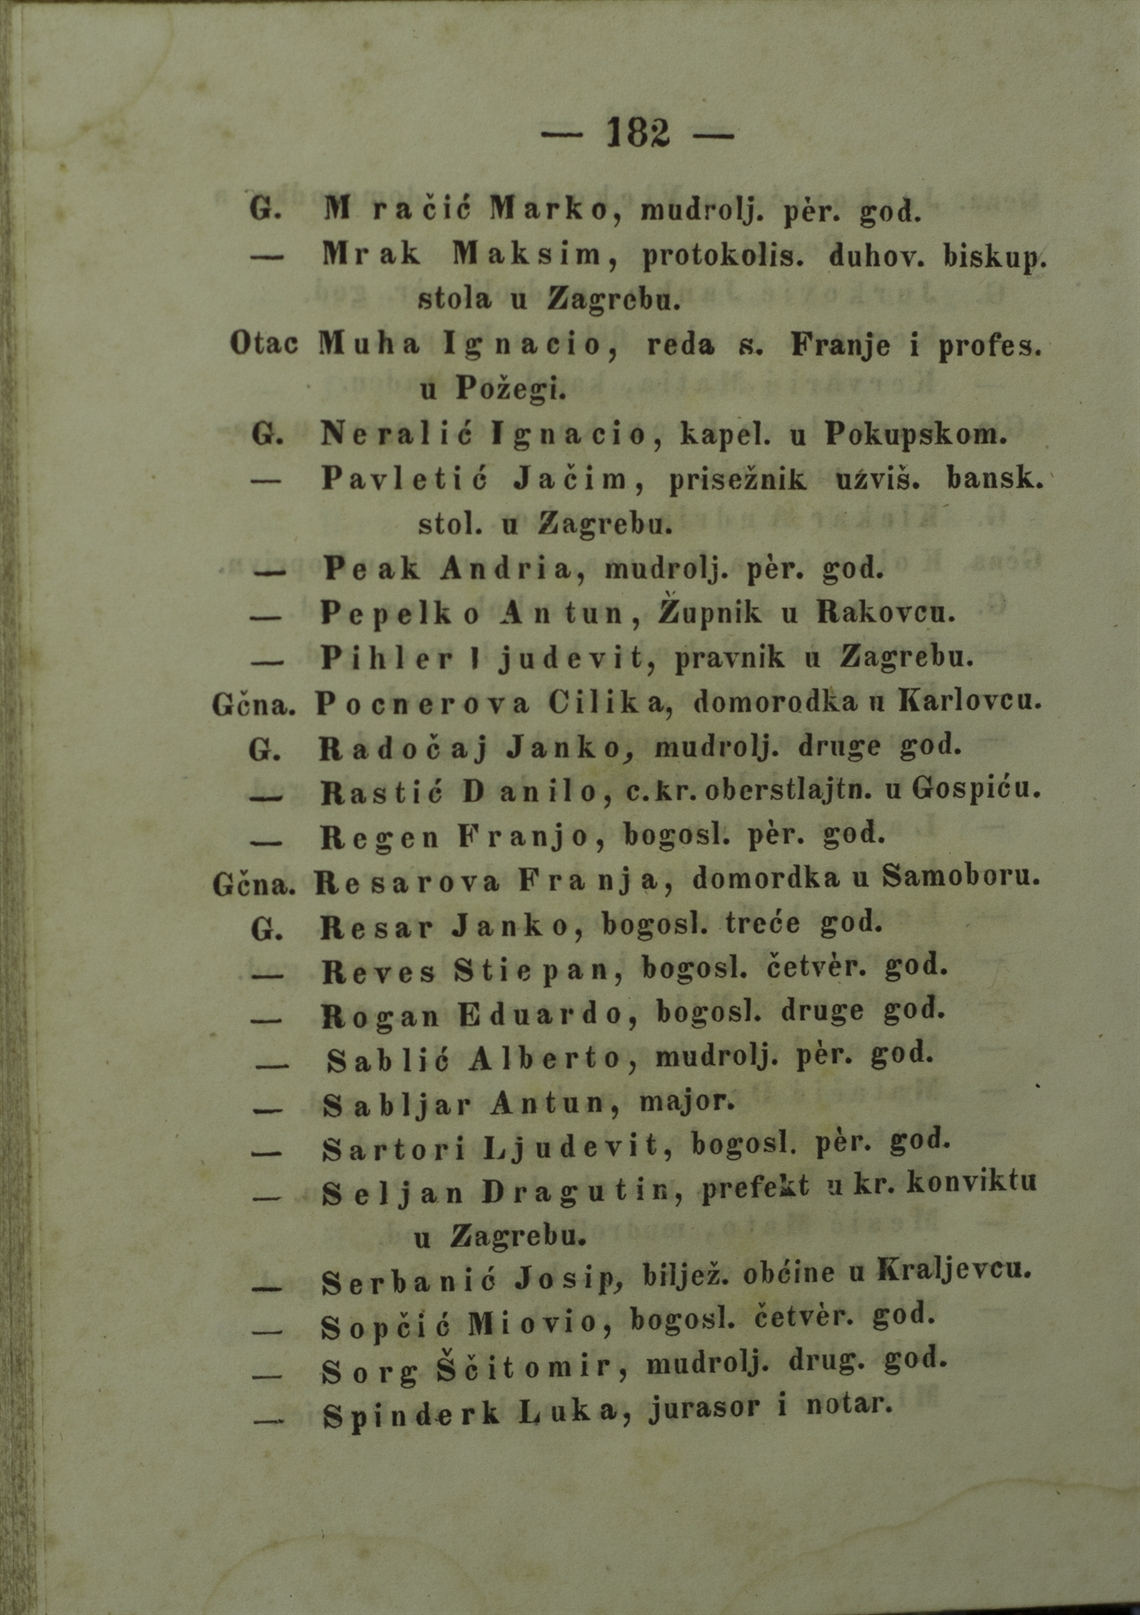 — 182 —
G. Mračić Marko, mudrolj. pèr. god.
— Mrak Maksim, protokolis. duhov. biskup.
stola u Zagrebu.
Otac Muha Ignacio, reda s. Franje i profes.
u Požegi.
G. Neralić Ignacio, kapel. u Pokupskom.
— Pavletić Jačim, prisežnik uzviš. bansk.
stol. u Zagrebu.
— Peak Andria, mudrolj. pèr. god.
— Pepelko Antun, Župnik u Rakovcu.
— Pihler ljudevit, pravnik u Zagrebu.
Gčna. Pocnerova Cilika, domorodka u Karlovcu.
G. Radočaj Janko, mudrolj. druge god.
— Rastić Danilo, c.kr. oberstlajtn. u Gospiću.
— Regen Franjo, bogosl. pèr. god.
Gčna. Resarova Franja, domordka u Samoboru.
G. Resar Janko, bogosl. treće god.
— Reves Stiepan, bogosl. četvèr. god.
— Rogan Eduardo, bogosl. druge god.
— Sablić Alberto, mudrolj. pèr. god.
— Sabljar Antun, major.
— Sartori Ljudevit, bogosl. pèr. god.
— Seljan Dragutin, prefekt u kr. konviktu
u Zagrebu.
— Serbanić Josip, biljež. obćine u Kraljevcu.
— Sopčić Miovio, bogosl. četvèr. god.
— Sorg Ščitomir, mudrolj. drug. god.
— Spinderk Luka, jurasor i notar.